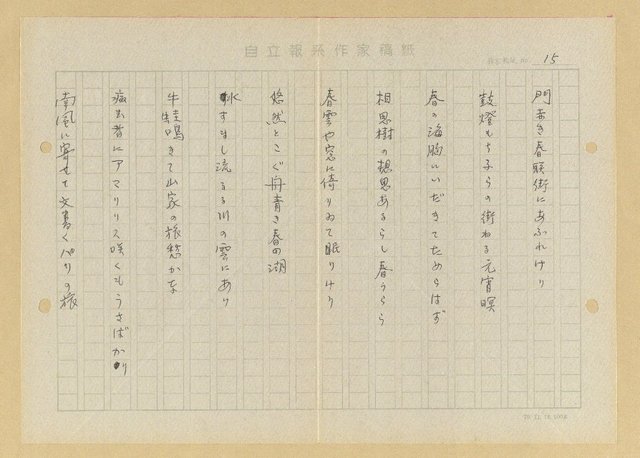 自立報系作家稿紙
15
門赤き春聯街にあふれけり
鼓燈もち子らの街ねる元宵暝
春の海胸にいだきてためらはず
相思樹の想思あるらし春うらら
春雲や窓に倚りゐて眠りけり
悠然とこぐ舟青き春の湖
すまし流るる川の雲にあり
牛蛙鳴きて山家の旅愁かな
病む者にアマリリス咲くもうさばかり
南風に寄せて文書くパリの旅